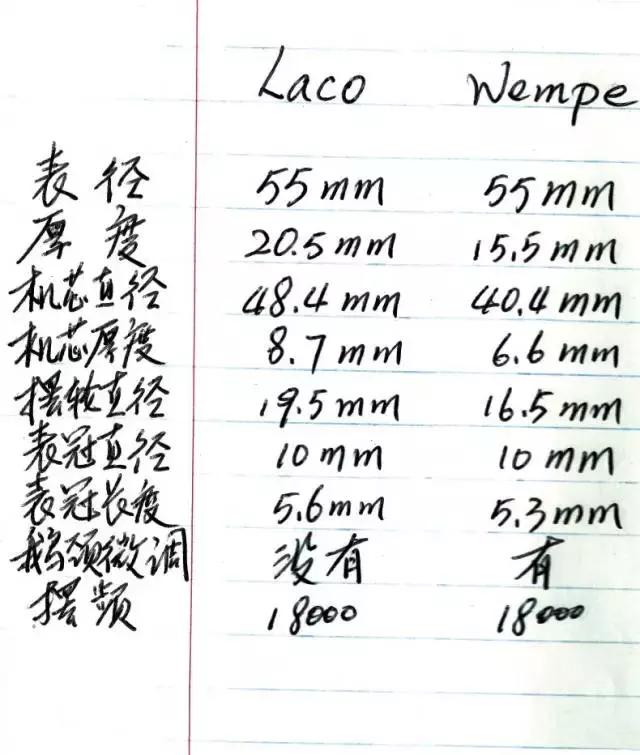 Laco Wempe
表径 55mm 55mm
厚度 20.5mm 15.5mm
机芯直径 48.4mm 40.4mm
机芯厚度 8.7mm 6.6mm
摆轮直径 19.5mm 16.5mm
表冠直径 10mm 10mm
表冠长度 5.6mm 5.3mm
鹅颈微调 没有 有
摆频 18000 18000